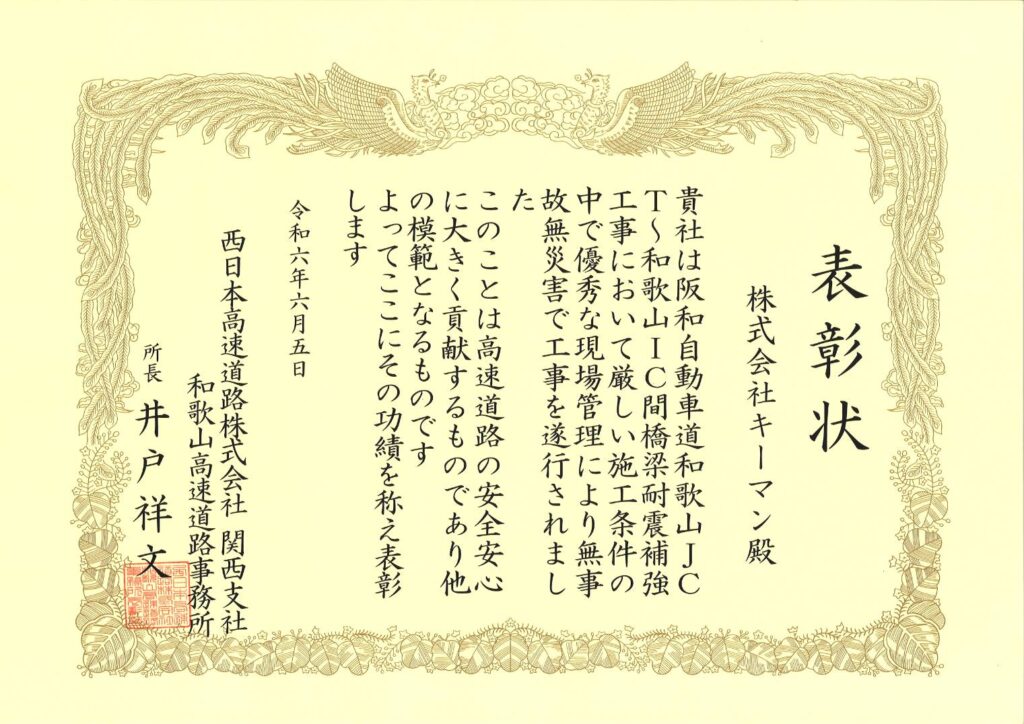 表彰状
株式会社キーマン殿
貴社は阪和自動車道和歌山JC
T～和歌山IC間橋梁耐震補強
工事において厳しい施工条件の
中で優秀な現場管理により無事
故無災害で工事を遂行されまし
た
このことは高速道路の安全安心
に大きく貢献するものであり他
の模範となるものです
よってここにその功績を称え表彰
します
令和六年六月五日
西日本高速道路株式会社 関西支社
和歌山高速道路事務所
所長 井戸祥文